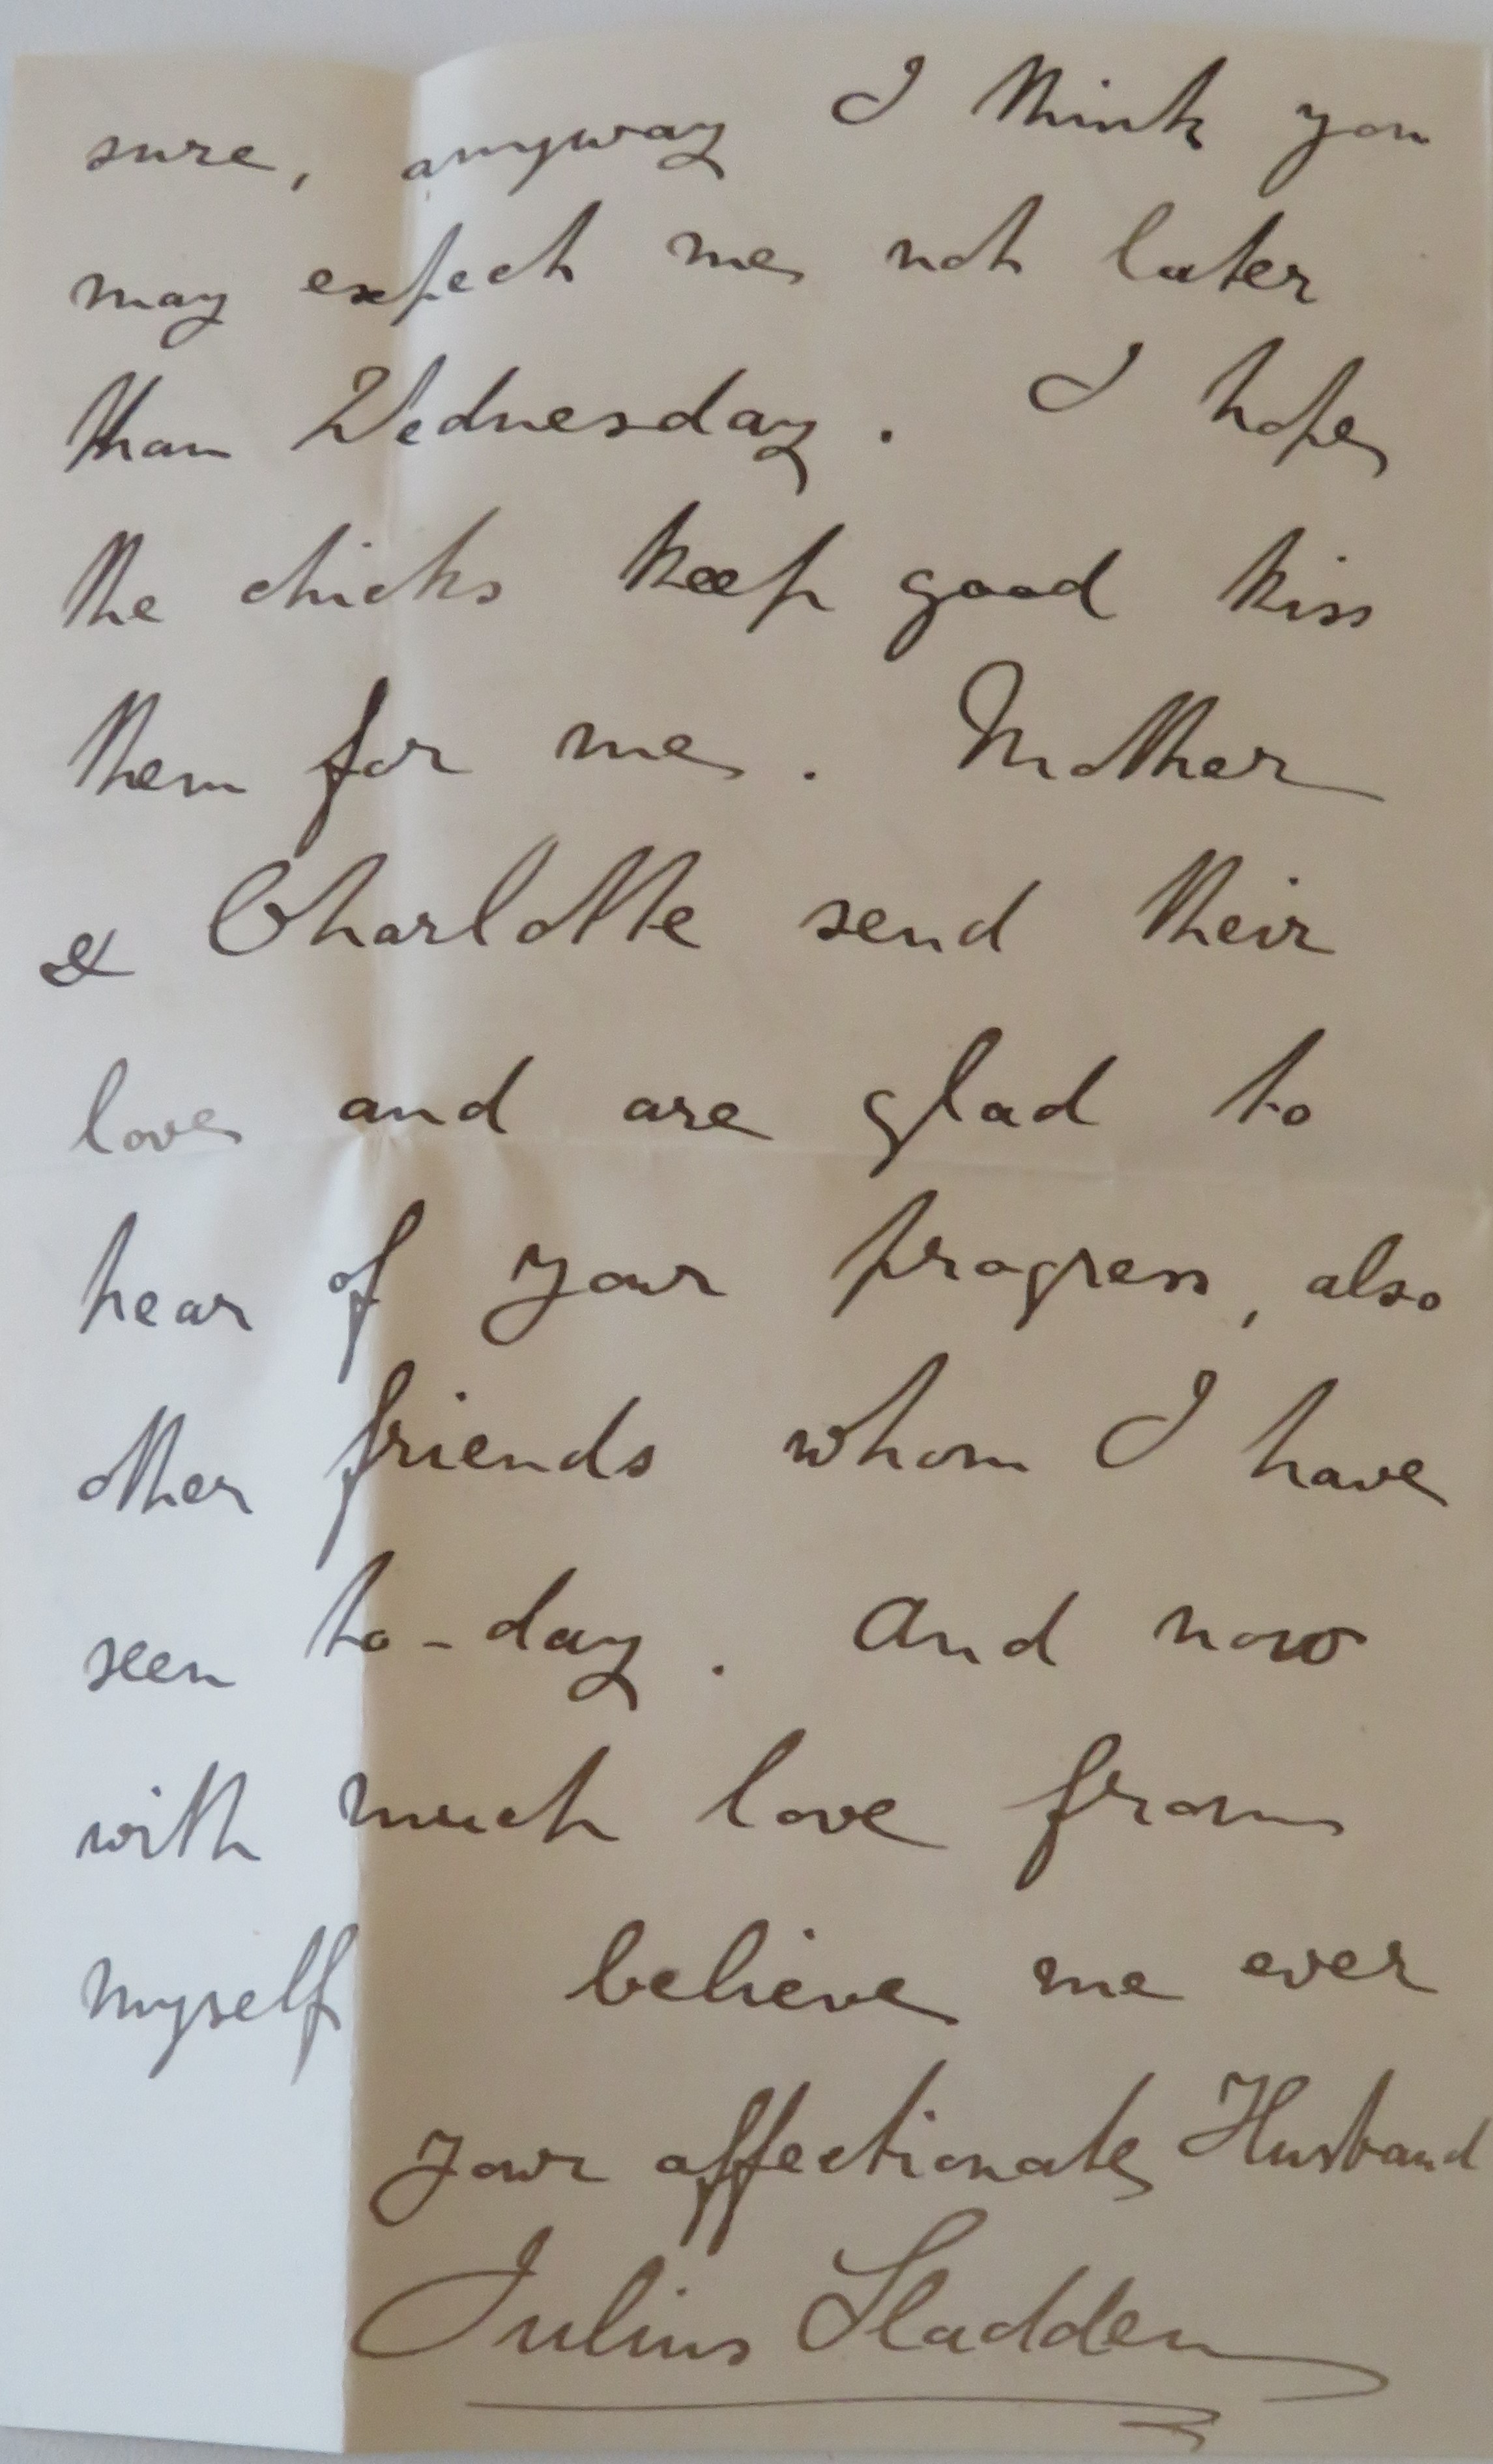 sure, anyway I think you
may expect me not later
than Wednesday. I hope
the chicks keep good kiss
them for me. Mother
& Charlotte send their
love and are glad to
hear of your progress, also
other friends whom I have
seen to-day. And now
with much love from
myself believe me ever
your affectionate Husband
Julius Sladden